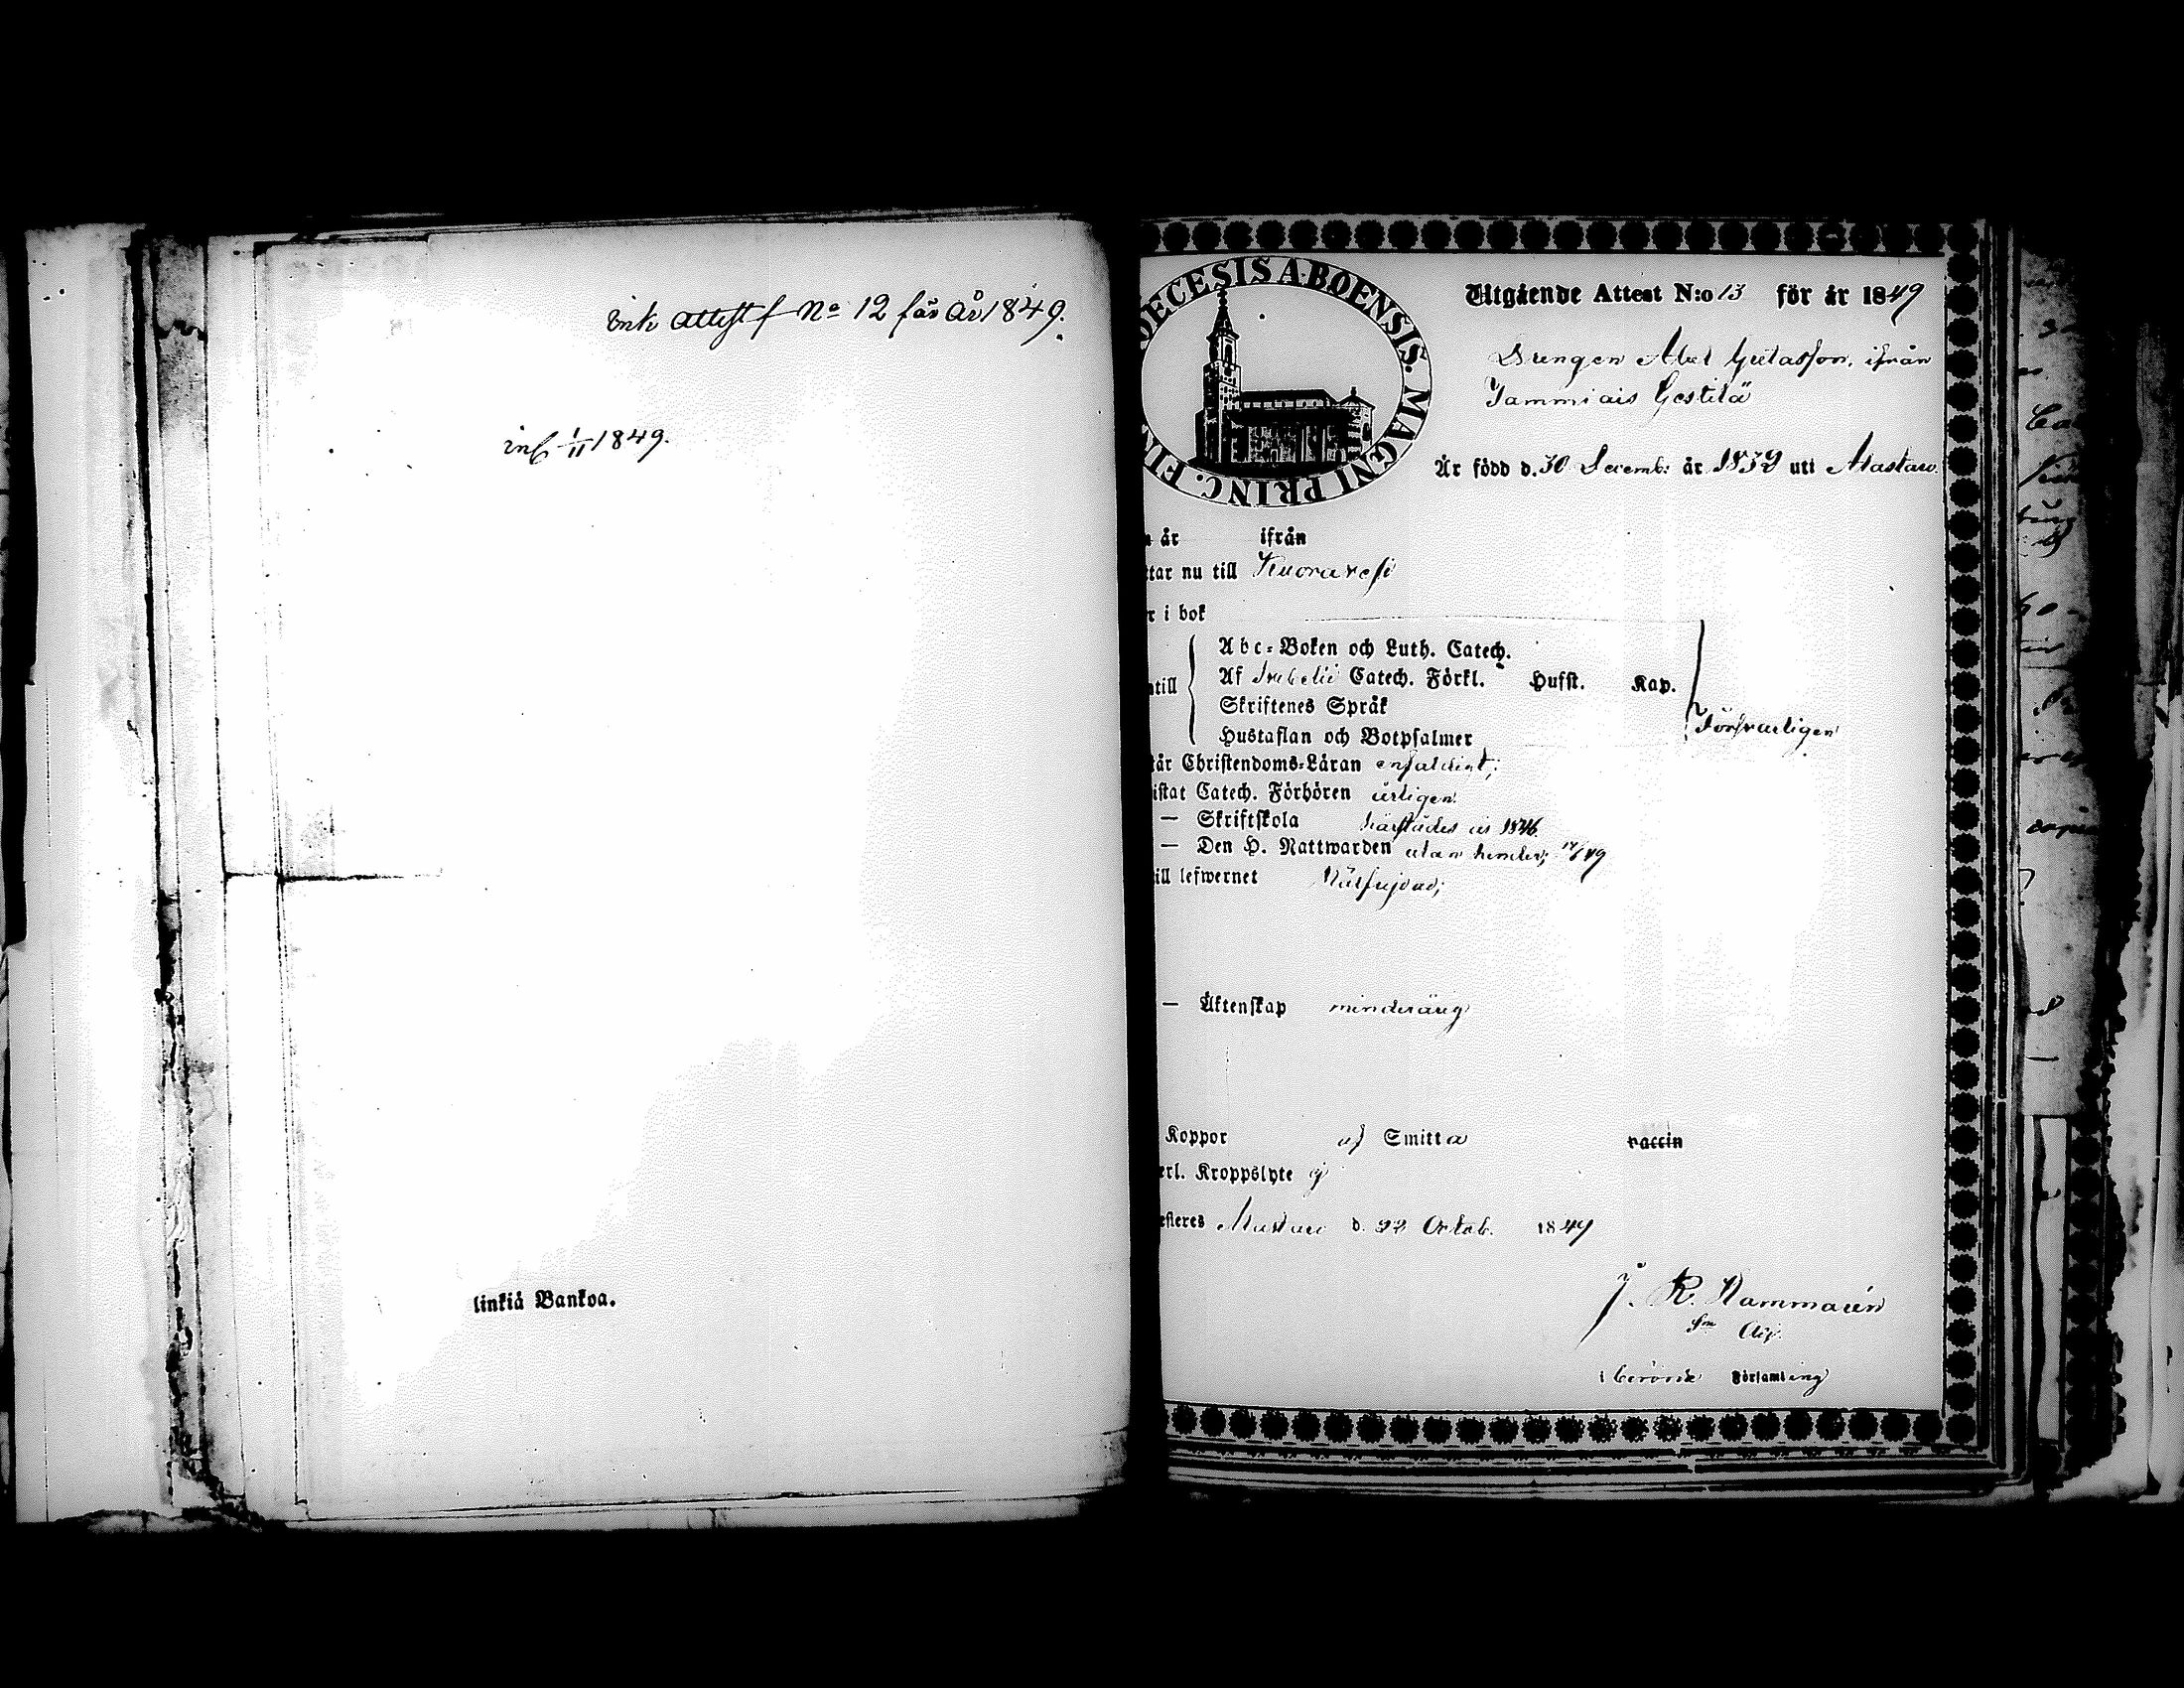 Ink attest f No 12 för år 1849.
inf 1/11 1849.
linkiä Bankoa.
DECESIS ABOENSIS. MAGNI PRINC. FIN
Utgående Attest N:o 13 för år 1849
Drengen Abel Gustafson, ifrån
Tammiais
År född d. 30 Decemb: år 1839 uti Maskau.
år ifrån
tar nu till Kuorevesi
r i bok
Abc-Boken och Luth. Catech.
till Af Svebelii Catech. Förkl. Hufst. Kap.
Skriftenes Språk
Försvarligen
Hustaflan och Botpsalmer
tår Christendoms-Läran enfaldigt;
istat Catech. Förhören årligen.
— Skriftskola härstädes år 1846
— Den H. Nattwarden utan hinder; 49
ill lefwernet Wälfrejdad;
— Äktenskap minderårig
Koppor af Smitta vaccin
erl. Kroppslyte ej
esteres Maskau d. 22 Octob. 1849
J. R. Hammarén
Adj.
i berörde Församling